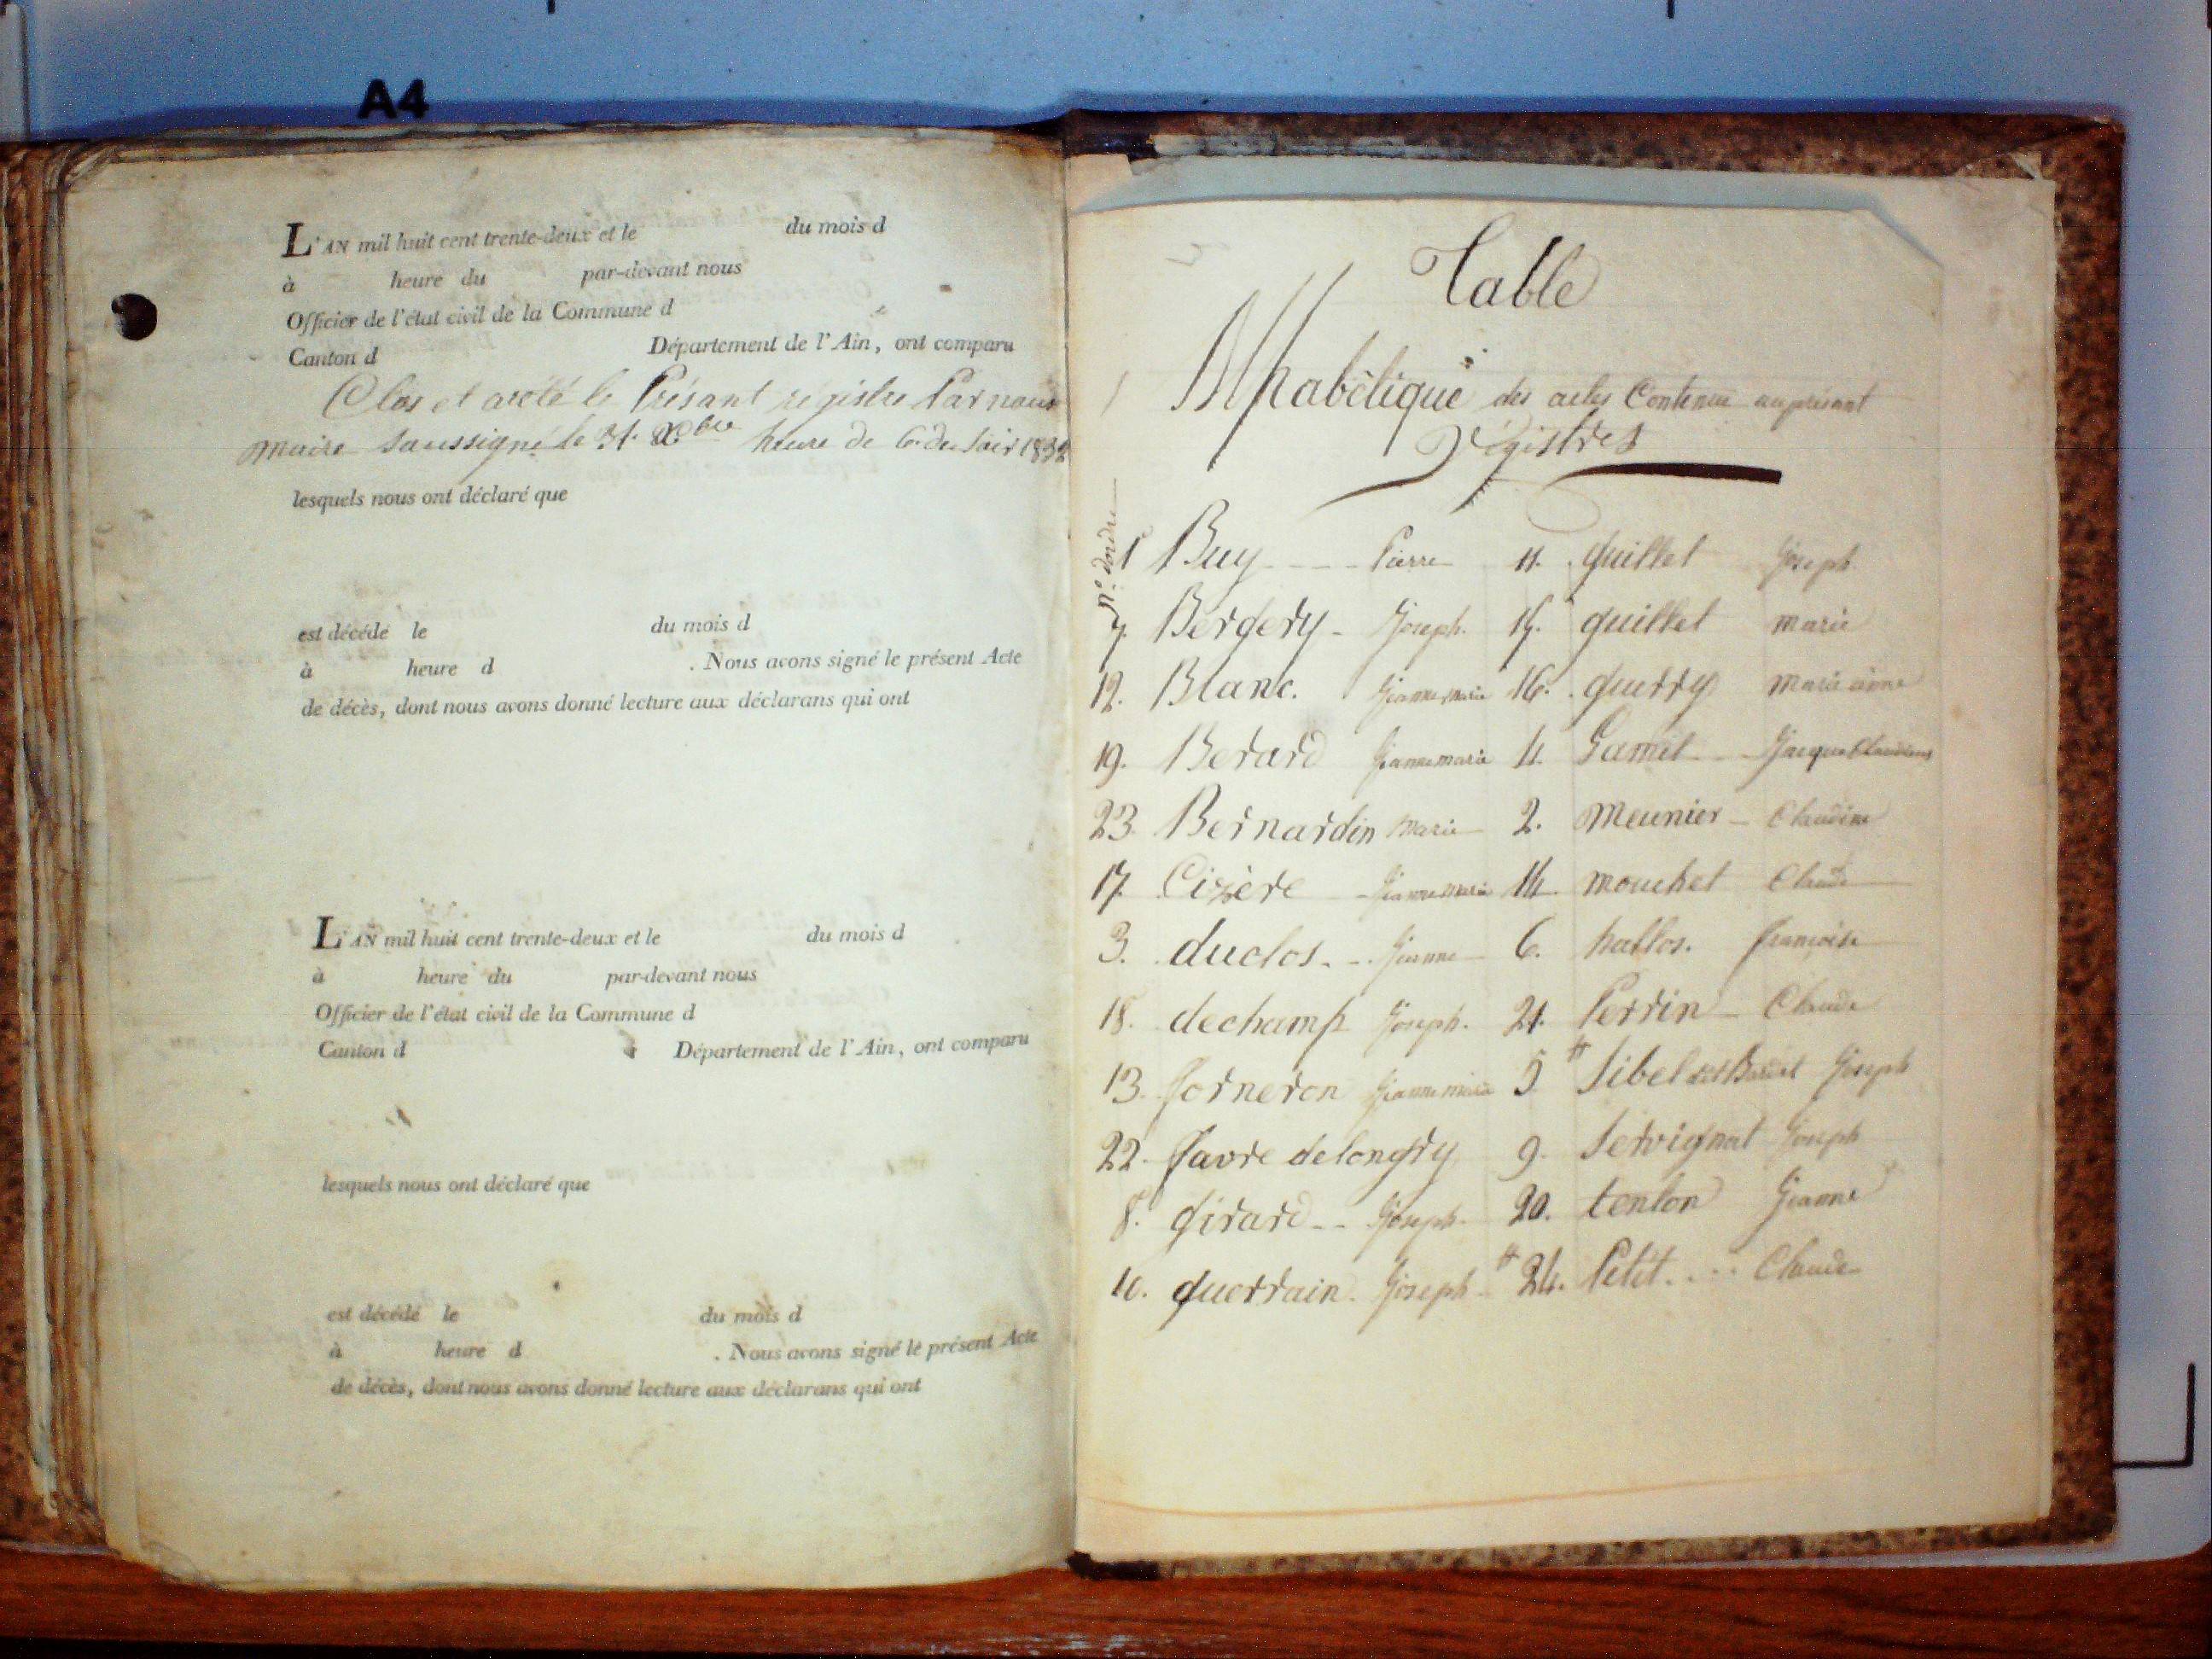 A4
L'AN mil huit cent trente-deux et le du mois d
à heure du par-devant nous
Officier de l'état civil de la Commune d
Canton d Département de l'Ain, ont comparu
Clos et arêté le Présant régistre Par nous
maire Saussigné le 31. Xbre heure de 6 du Soir 1832
lesquels nous ont déclaré que
est décédé le du mois d
à heure d . Nous avons signé le présent Acte
de décès, dont nous avons donné lecture aux déclarans qui ont
L'AN mil huit cent trente-deux et le du mois d
à heure du par-devant nous
Officier de l'état civil de la Commune d
Canton d Département de l'Ain, ont comparu
lesquels nous ont déclaré que
est décédé le du mois d
à heure d . Nous avons signé le présent Acte
de décès, dont nous avons donné lecture aux déclarans qui ont
Table
Alphabétique des actes Contenu au présant
Régistres
n.º dordre
1 Buy Pierre 11. guillet Joseph
7. Bergery Joseph. 15. guillet marie
12. Blanc. Jeanne marie 16. guerry marie anne
19. Berard Jeanne marie 4. Jacque
23. Bernardin marie 2. Meunier Claudine
17. Cizère Jeanne marie 14. mouchet Claude
3. duclos. Jeanne 6. pallos. françoise
18. dechamp Joseph. 21. Perrin Claude
13. forneron Jeanne marie 5 Sibel Joseph
22. favre delongry 9. Servignat Joseph
8. girard Joseph. 20. tenlon Jeanne
10. guerrain. Joseph 24. Petit Claude